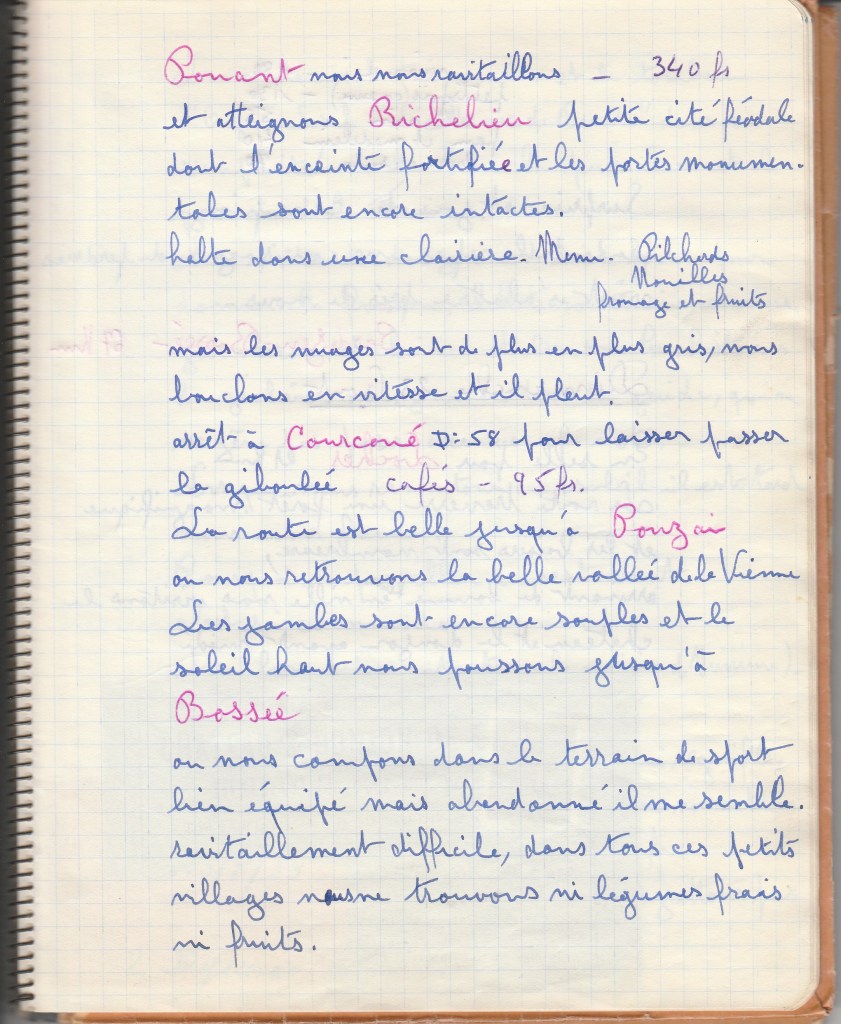 Pouant nous nous ravitaillons - 340 fs
et atteignons Richelieu petite cité féodale
dont l'enceinte fortifiée et les portes monumen-
tales sont encore intactes.
halte dans une clairière. Menu. Pilchards
Nouilles
fromage et fruits
mais les nuages sont de plus en plus gris, nous
bouclons en vitesse et il pleut.
arrêt à Courcoué D: 58 pour laisser passer
la giboulée cafés - 95 fs.
La route est belle jusqu'à Pouzai
ou nous retrouvons la belle vallée de la Vienne
Les jambes sont encore souples et le
soleil haut nous poussons jusqu'à
Bossée
ou nous campons dans le terrain de sport
bien équipé mais abandonné il me semble.
ravitaillement difficile, dans tous ces petits
villages nous ne trouvons ni légumes frais
ni fruits.